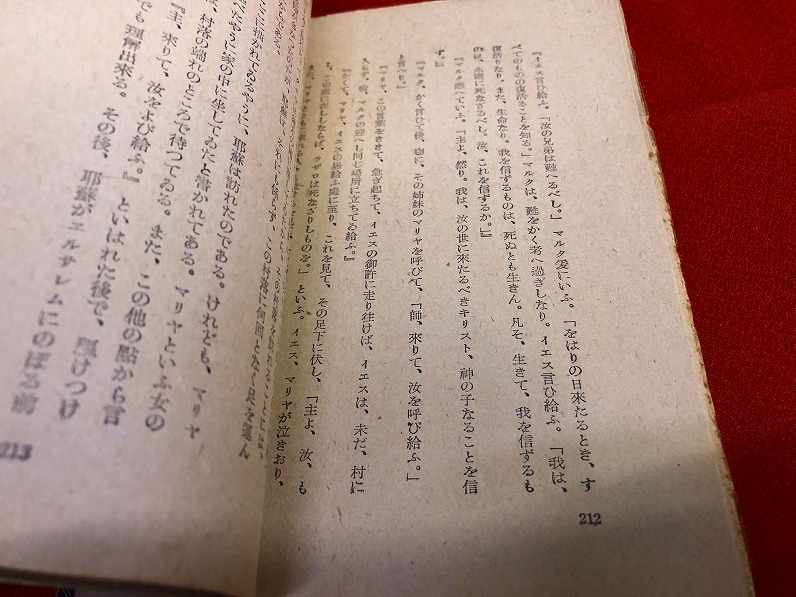 『イエス言ひ給ふ。「汝の兄弟は甦へるべし。」マルタ爰にいふ。「をはりの日來たるとき、す
べてのもの復活ることを知る。」マルタは、甦をかく考へ過ぎしなり。イエス言ひ給ふ。「我は、
復活なり。また、生命なり。我を信ずるものは、死ぬとも生きん。凡そ、生きて、我を信ずるも
のは、永遠に死なざるべし。汝、これを信ずるか。』
『マルタ應へていふ。「主よ、然り。我は、汝の世に來たるべきキリスト、神の子なることを信
ず。』
『マルタ、かく言ひて後、窃に、その姉妹のマリヤを呼びて、「師、來りて、汝を呼び給ふ。」
と言へり』
『マリヤ、この言葉をききて、急ぎ起ちて、イエスの御許に走り往けば、イエスは、未だ、村に
入らず、尚、マルタの迎へし同じ場所に立ちてゐ給ふ。』
『かくて、マリヤ、イエスの居給ふ處に至り、これを見て、その足下に伏し、「主よ、汝、も
し、この處に在ししならば、ラザロは死なざりしものを。」といふ。イエス、マリヤが泣きおり、
212
この村落に何回となく足を運ん
ここに描かれてゐるやうに、耶蘇は訪れたのである。けれども、マリヤ
家の中に坐してゐたと書かれてゐる。マリヤといふ女の
村落の端れのところで待つてゐる。また、この他の點から言
『主、來りて、汝をよび給ふ。』といはれた後で、駆けつけ
でも理解出來る。その後、耶蘇がエルサレムにのぼる前
213